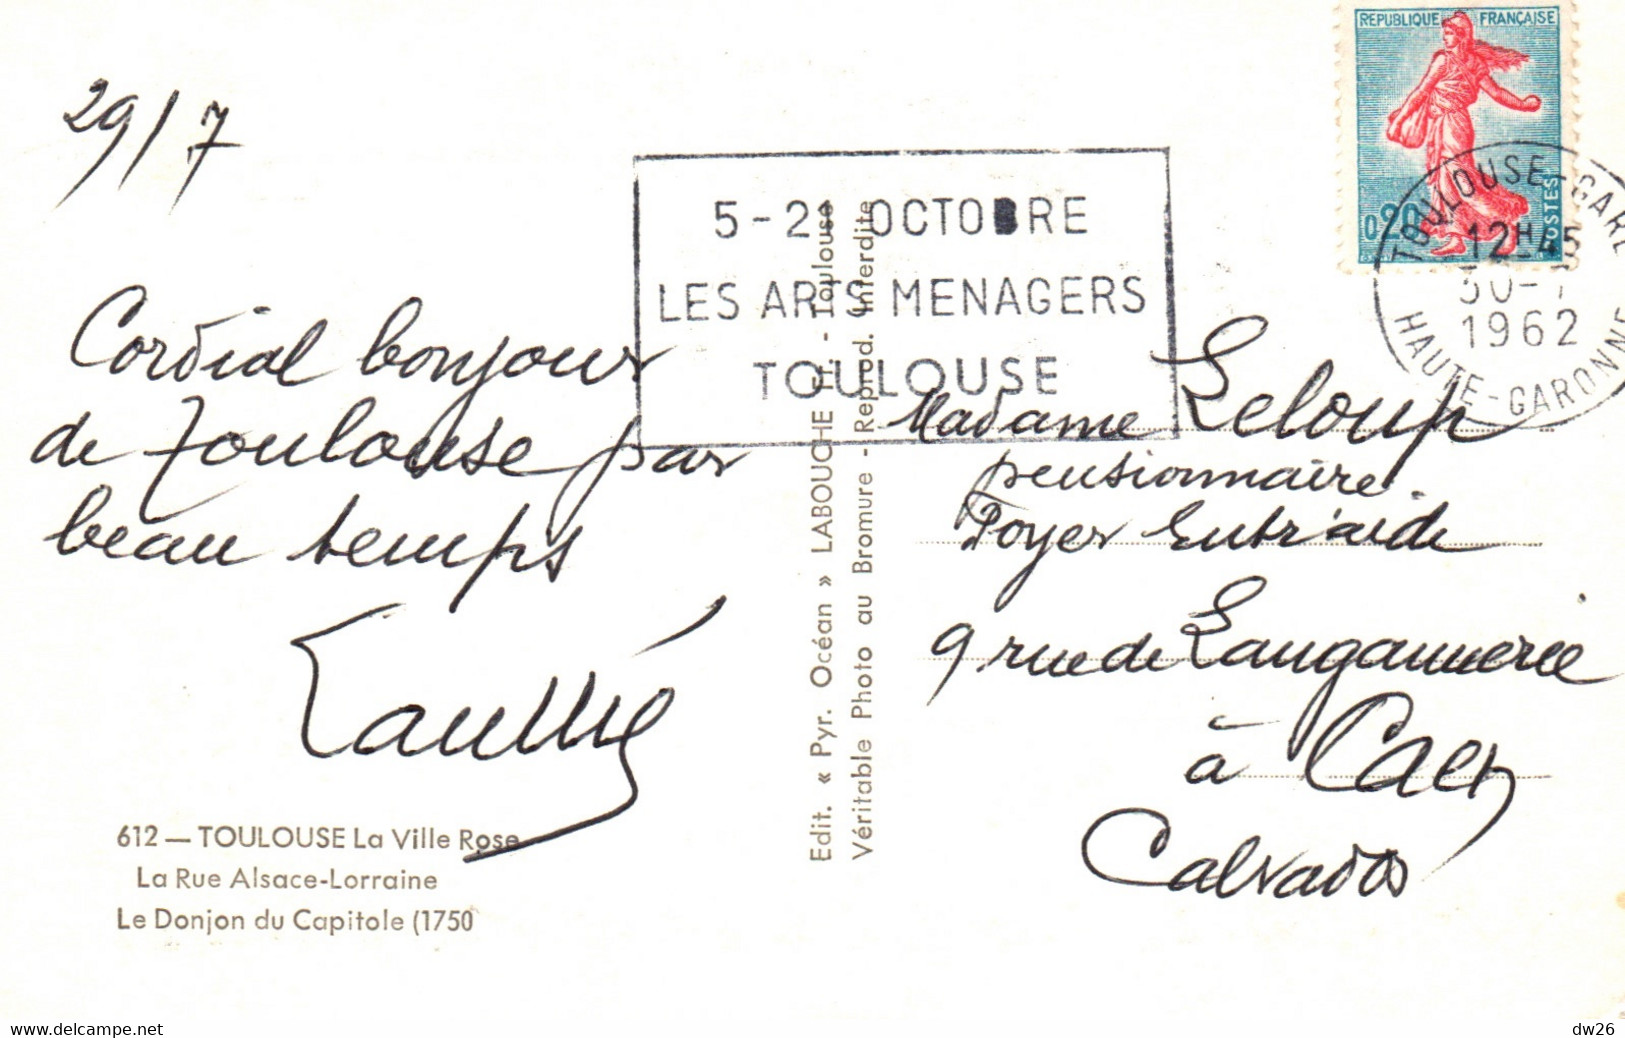 29/7
Cordial bonjour
de Toulouse par
beau temps
612 — TOULOUSE La Ville Rose
La Rue Alsace-Lorraine
Le Donjon du Capitole (1750
Edit. « Pyr. Océan » LABOUCHE Fr. - Toulouse
Véritable Photo au Bromure - Reprod. Interdite
5-21 OCTOBRE
LES ARTS MENAGERS
TOULOUSE
REPUBLIQUE FRANÇAISE
0,20
POSTES
TOULOUSE-GARE
12H45
30-7
1962
HAUTE-GARONNE
Madame Leloup
pensionnaire
Foyer Entr'aide
9 rue de Langannerie
à Caen
Calvados
www.delcampe.net
dw26